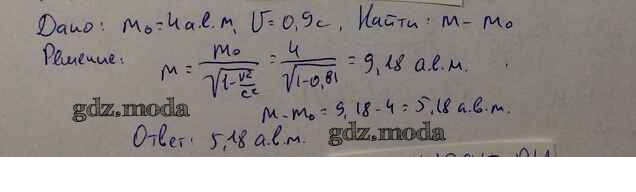 Дано: m₀=4 а.е.м, V=0,9c, Найти: m-m₀
Решение: m = m₀/√(1-V²/c²) = 4/√(1-0,81) = 9,18 а.е.м.
gdz.moda
m-m₀ = 9,18-4 = 5,18 а.е.м.
Ответ: 5,18 а.е.м.
gdz.moda